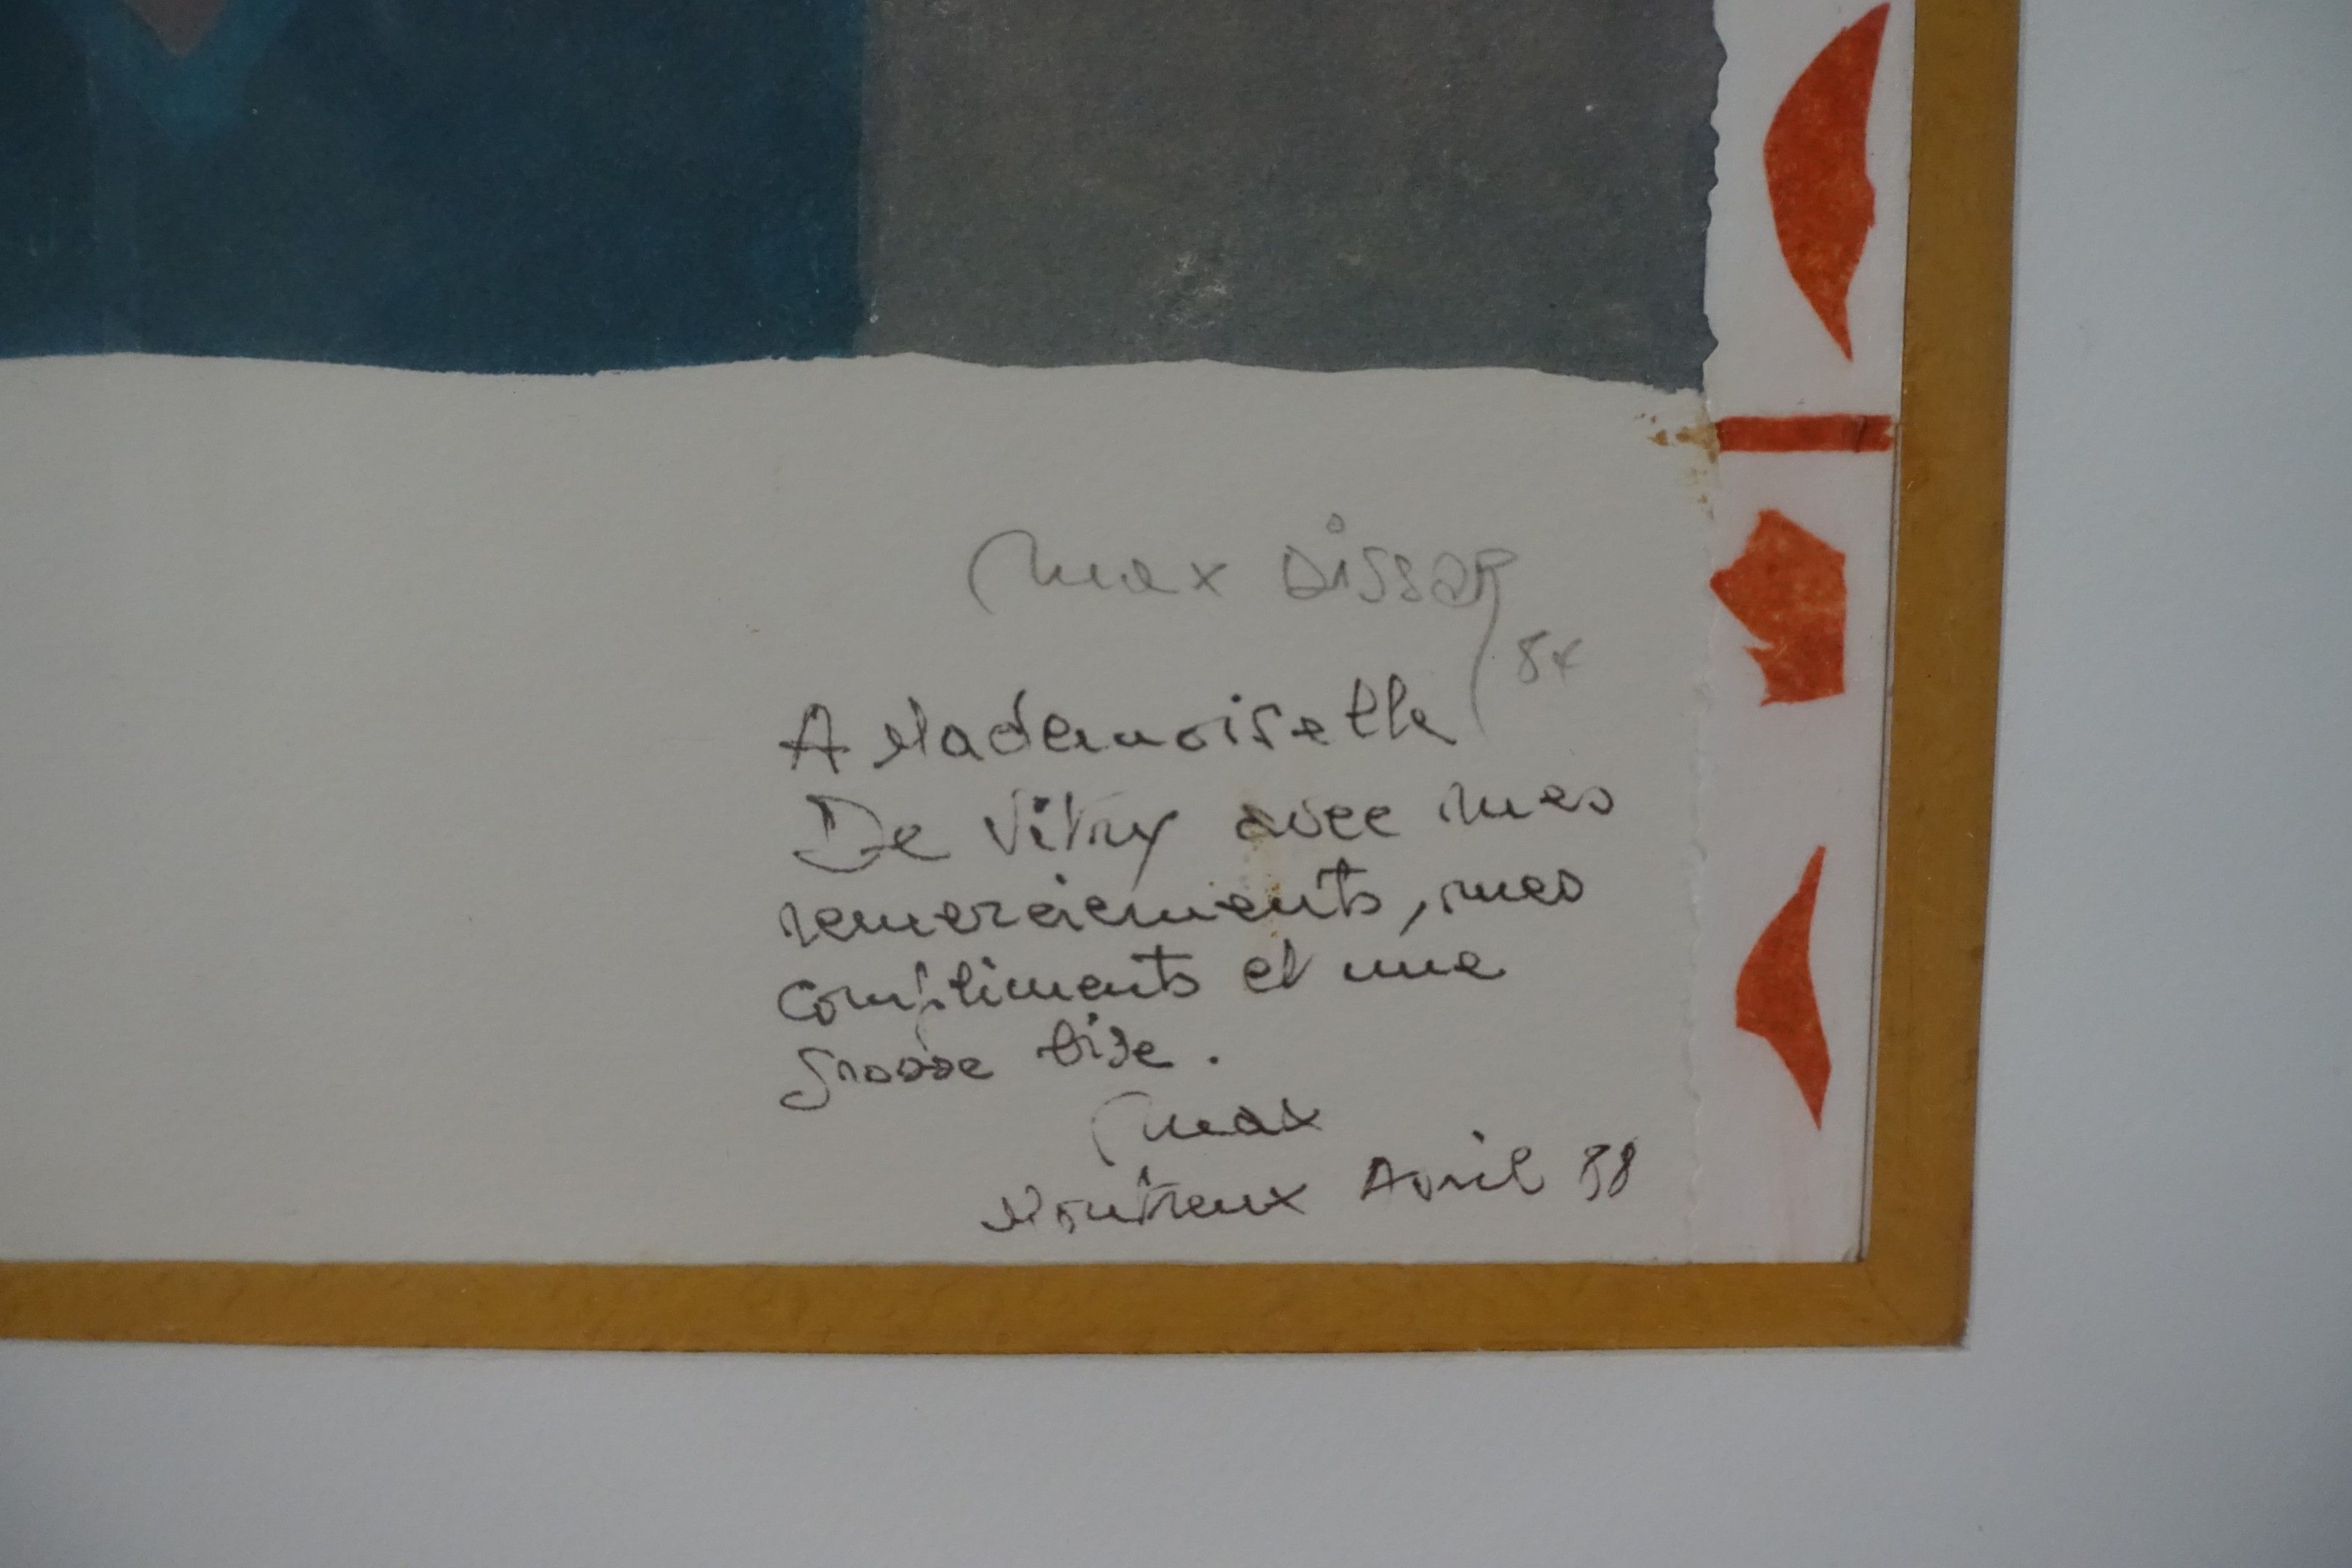 Max Dissar
/84
A Mademoiselle
De Vitry avec mes
remerciements, mes
compliments et une
grosse bise.
Max
Montreux Avril 88